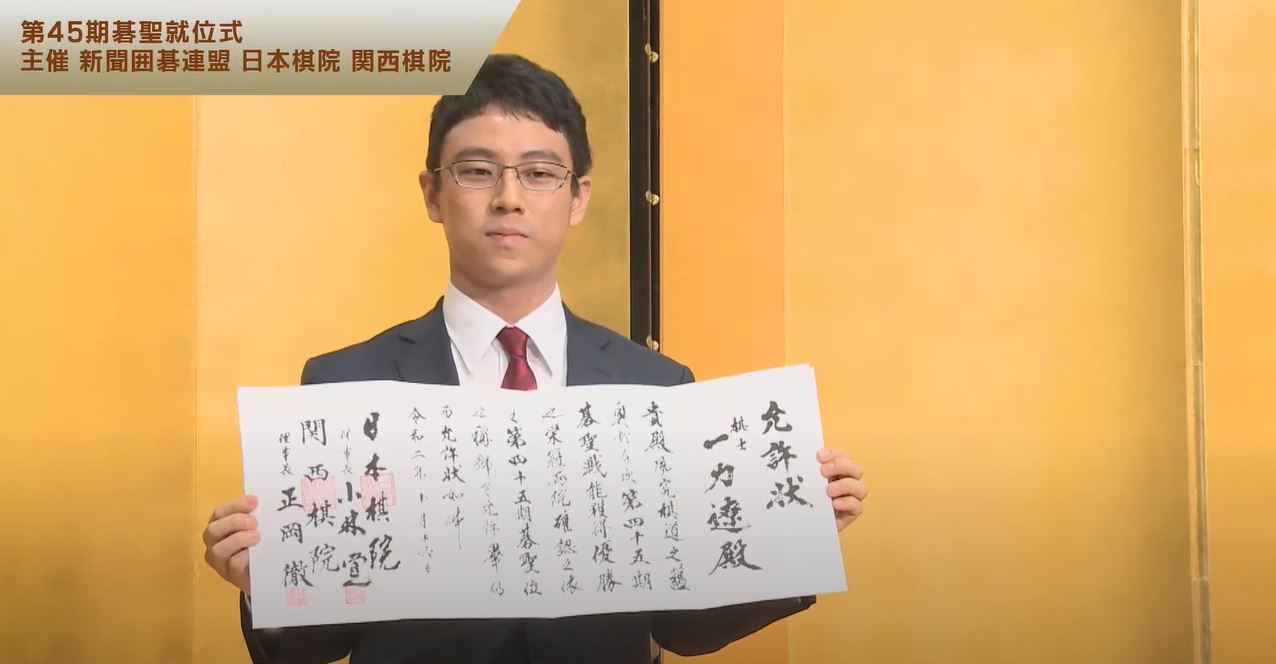 第45期碁聖就位式
主催 新聞囲碁連盟 日本棋院 関西棋院
允許状
棋士 一力遼殿
貴殿
棋道之蘊
第四十五期
碁聖戦能獲得優勝
之栄冠両院確認之依
之第四十五期碁聖位
之称号
允許
允許状如件
令和二年十月十六日
日本棋院
理事長 小林覚
関西棋院
理事長 正岡徹